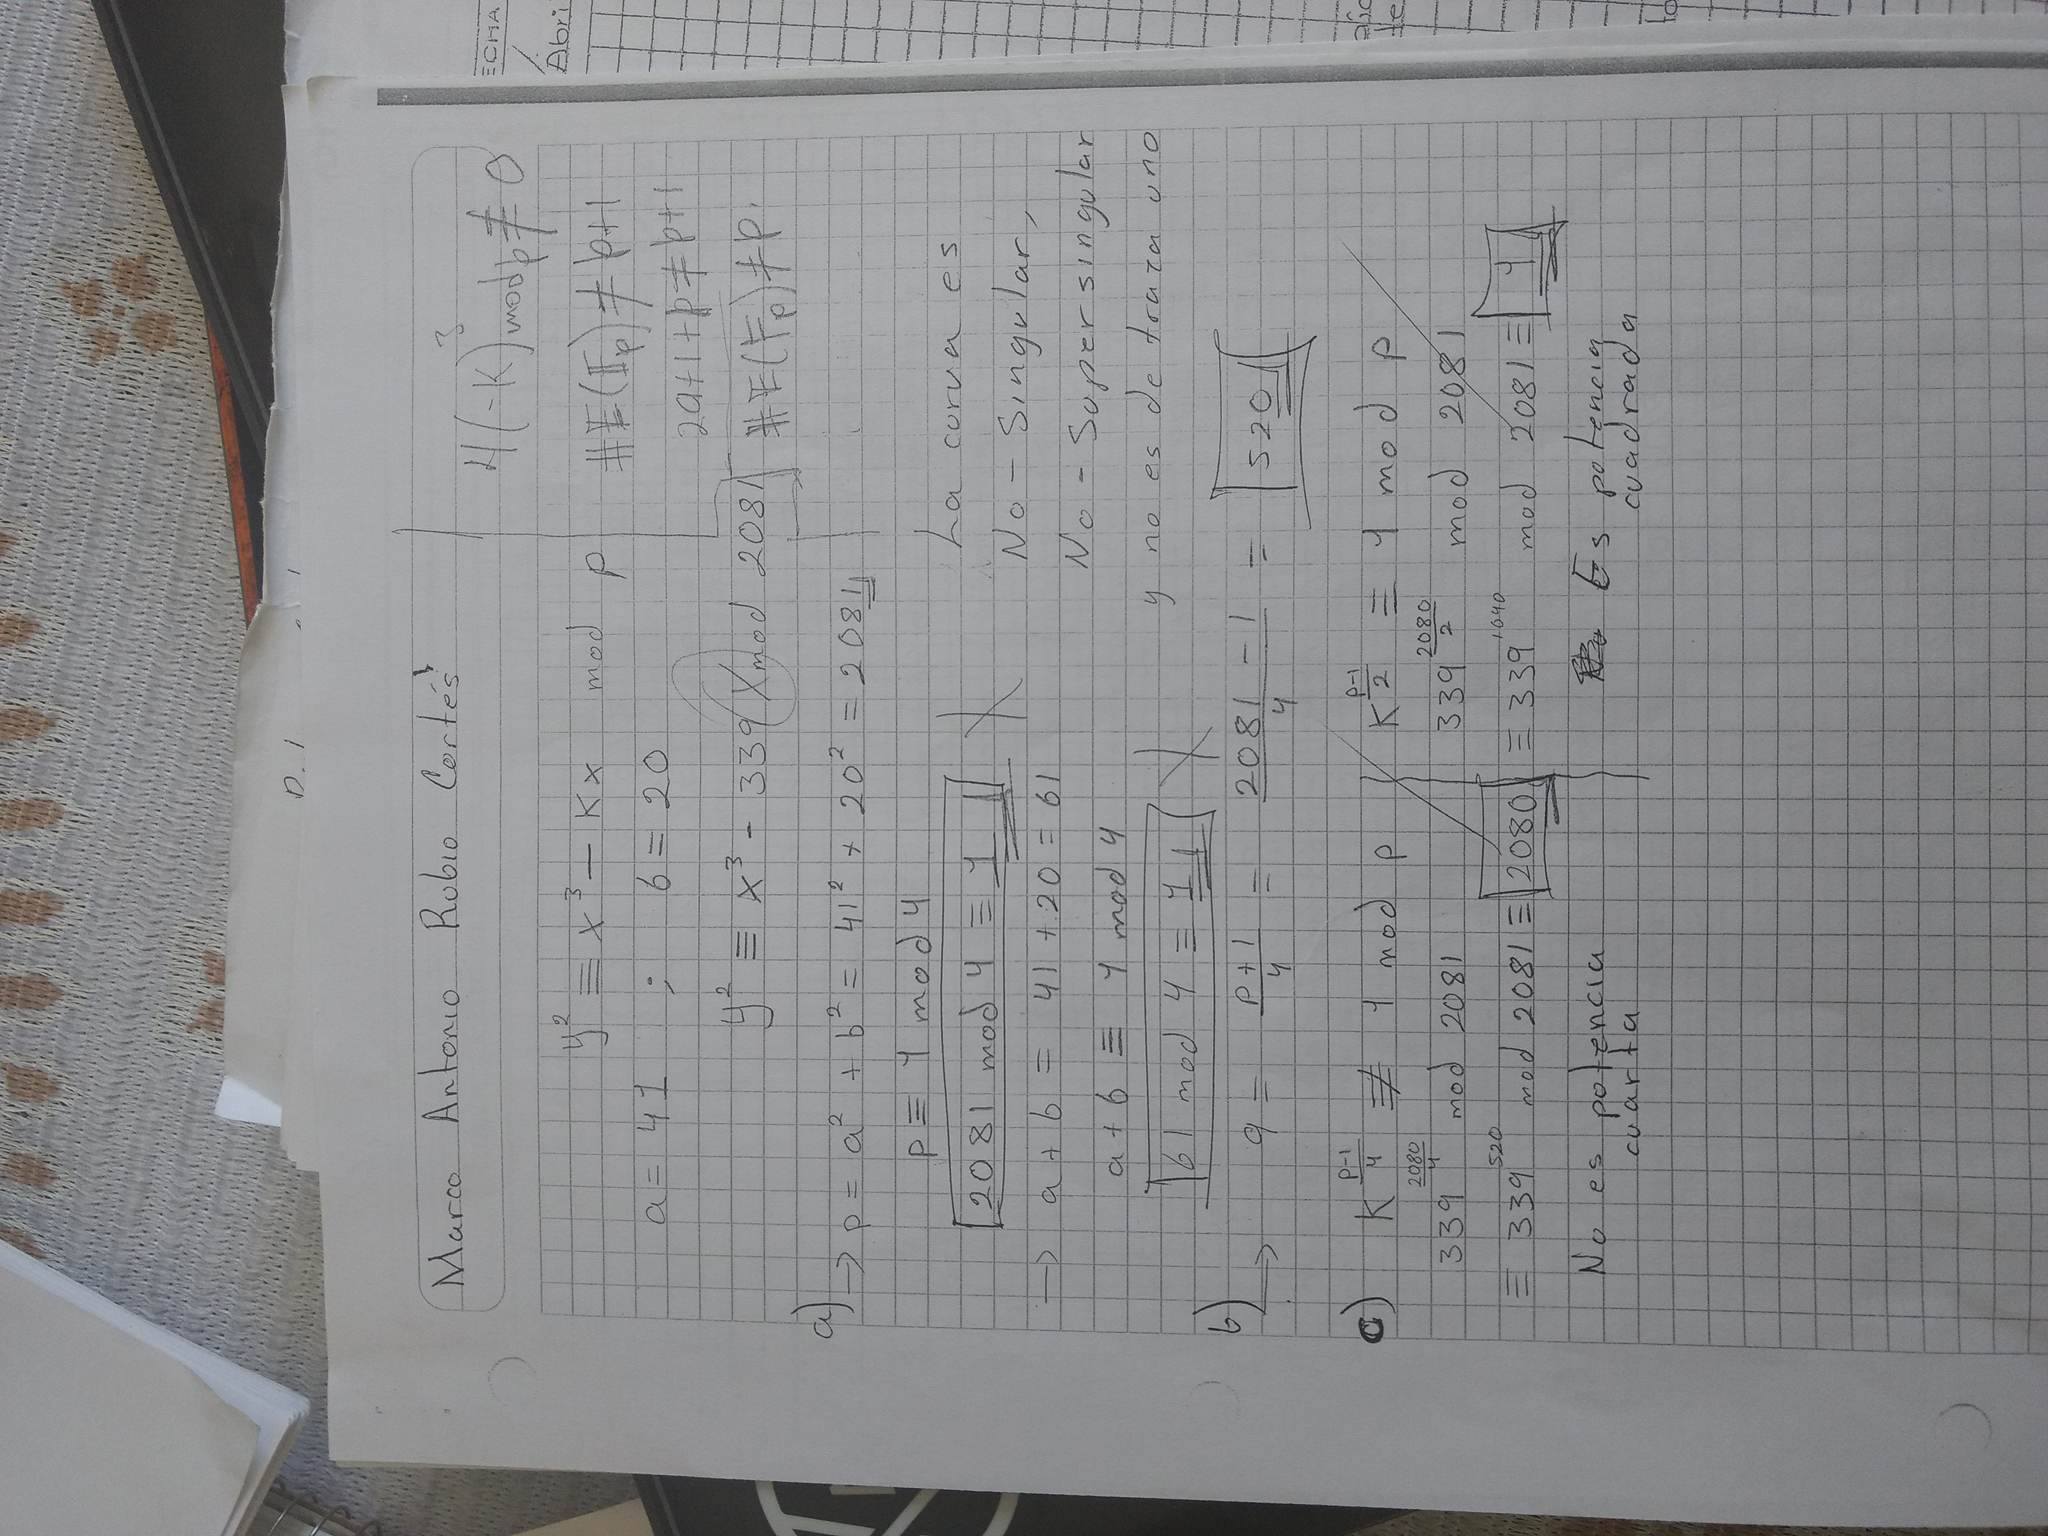 Marco Antonio Rubio Cortés
4(-K)³ mod p ≠ 0
y² ≡ x³ - Kx mod p
#E(F_p) ≠ p+1
a = 41 ; b = 20
2a+1+p ≠ p+1
y² ≡ x³ - 339 X mod 2081
#E(F_p) ≠ p.
a) → p = a² + b² = 41² + 20² = 2081
p ≡ 1 mod 4
2081 mod 4 ≡ 1
→ a + b = 41 + 20 = 61
a + b ≡ 1 mod 4
61 mod 4 ≡ 1
La curva es
No - Singular,
No - Supersingular
y no es de traza uno
b) → q = (p+1)/4 = (2081 - 1)/4 = 520
c) K^((p-1)/4) ≢ 1 mod p
339^(2080/4) mod 2081
≡ 339^520 mod 2081 ≡ 2080
No es potencia
cuarta
K^((p-1)/2) ≡ 1 mod p
339^(2080/2) mod 2081
≡ 339^1040 mod 2081 ≡ 1
Es potencia
cuadrada
ECHA
Abri